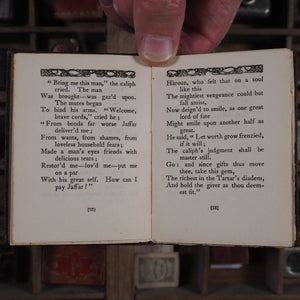 "Bring me this man," the caliph
cried. The man
Was brought—was gaz'd upon.
The mutes began
To bind his arms. "Welcome,
brave cords," cried he;
"From bonds far worse Jaffàr
deliver'd me;
From wants, from shames, from
loveless household fears;
Made a man's eyes friends with
delicious tears;
Restor'd me—lov'd me—put me
on a par
With his great self. How can I
pay Jaffàr?"
[12]
Haroun, who felt that on a soul
like this
The mightiest vengeance could but
fall amiss,
Now deign'd to smile, as one great
lord of fate
Might smile upon another half as
great.
He said, "Let worth grow frenzied,
if it will;
The caliph's judgment shall be
master still.
Go: and since gifts thus move
thee, take this gem,
The richest in the Tartar's diadem,
And hold the giver as thou deem-
est fit."
[13]